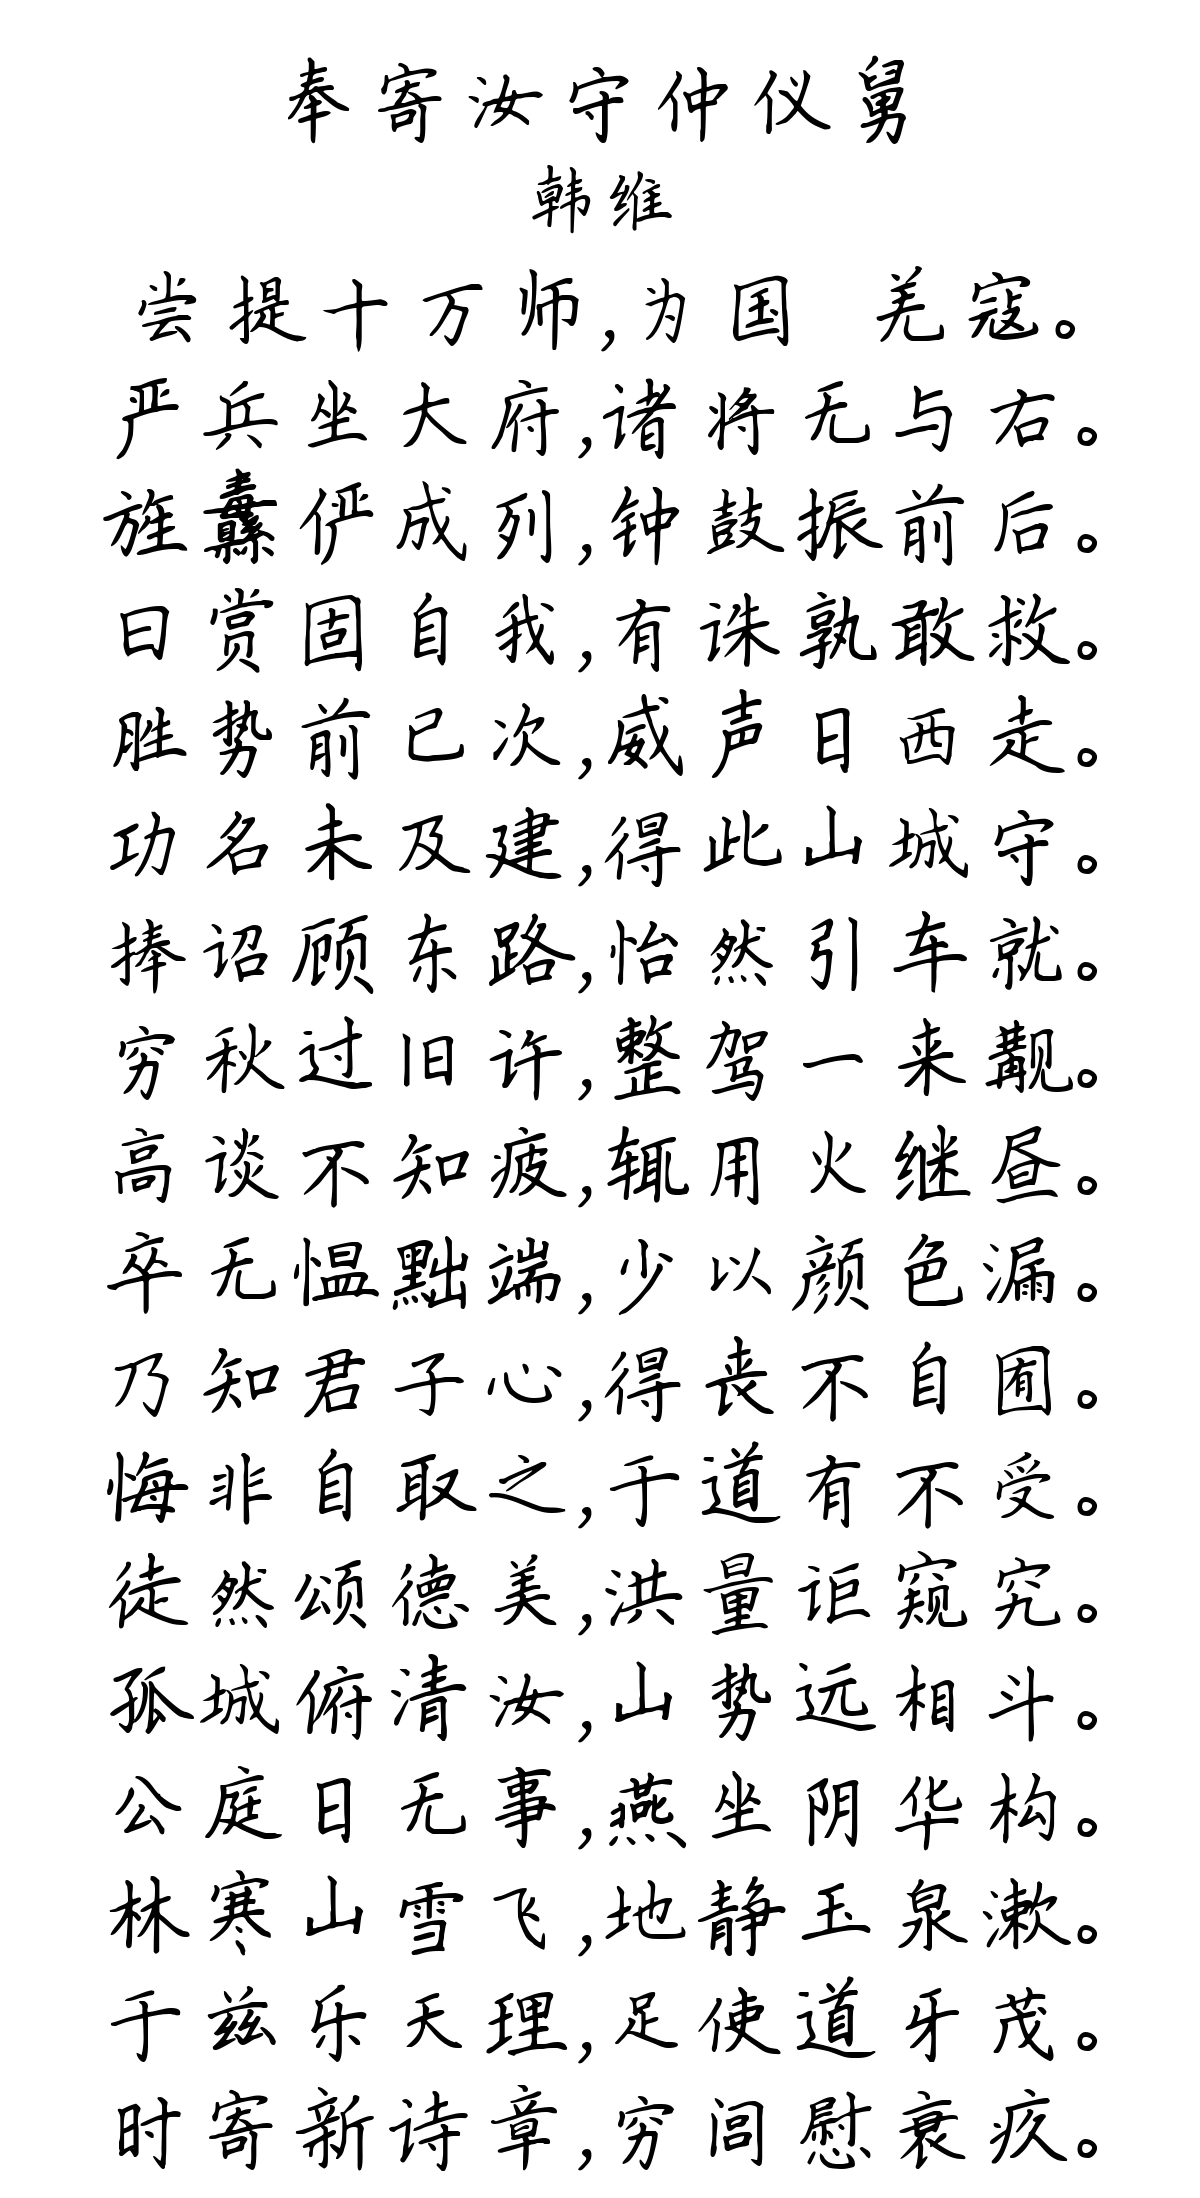 奉寄汝守仲仪舅
韩维
尝提十万师,为国 羌寇。
严兵坐大府,诸将无与右。
旌纛俨成列,钟鼓振前后。
曰赏固自我,有诛孰敢救。
胜势前已次,威声日西走。
功名未及建,得此山城守。
捧诏顾东路,怡然引车就。
穷秋过旧许,整驾一来觏。
高谈不知疲,辄用火继昼。
卒无愠黜端,少以颜色漏。
乃知君子心,得丧不自囿。
悔非自取之,于道有不受。
徒然颂德美,洪量讵窥究。
孤城俯清汝,山势远相斗。
公庭日无事,燕坐阴华构。
林寒山雪飞,地静玉泉漱。
于兹乐天理,足使道牙茂。
时寄新诗章,穷闾慰衰疚。